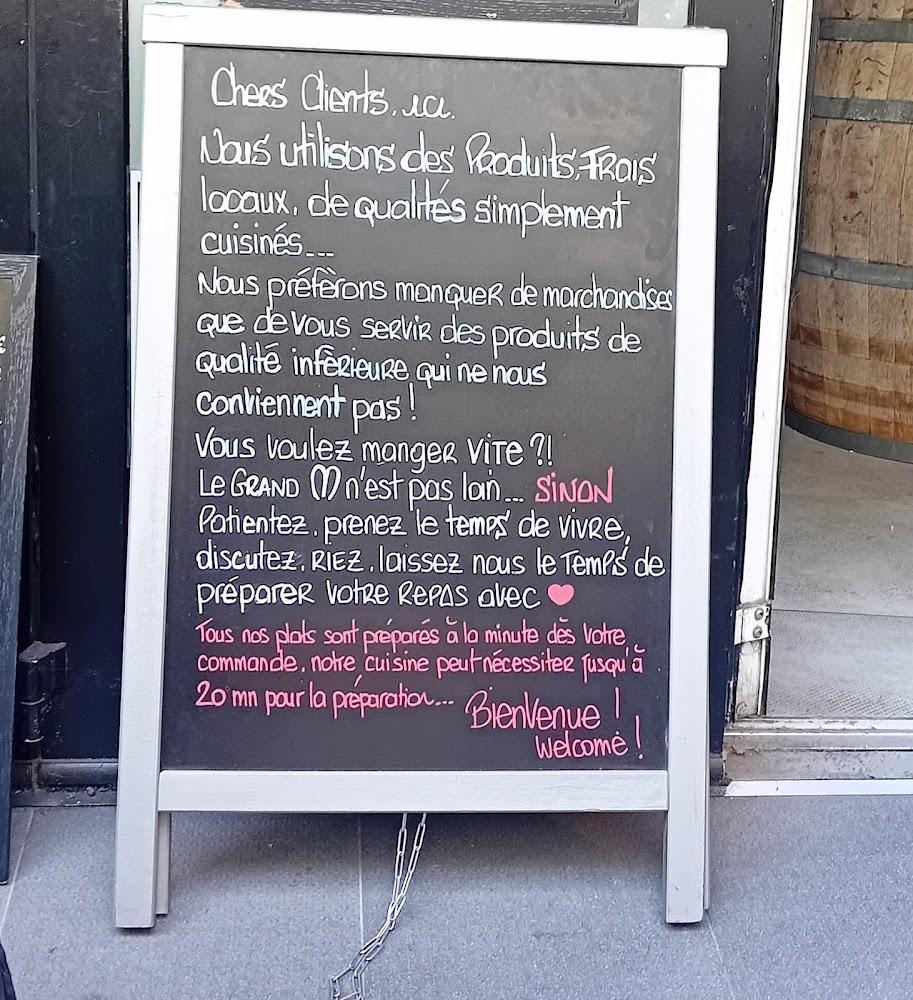 Chers Clients, ici.
Nous utilisons des Produits, Frais
locaux, de qualités simplement
cuisinés...
Nous préfèrons manquer de marchandises
que de vous servir des produits de
qualité infèrieure qui ne nous
conviennent pas !
Vous voulez manger vite ?!
Le Grand M n'est pas loin... SINON
Patientez, prenez le temps de vivre,
discutez, Riez, laissez nous le Temps de
préparer votre Repas avec ♥
Tous nos plats sont préparés à la minute dès votre
commande, notre cuisine peut nécessiter jusqu'à
20 mn pour la préparation...
Bienvenue !
Welcome !